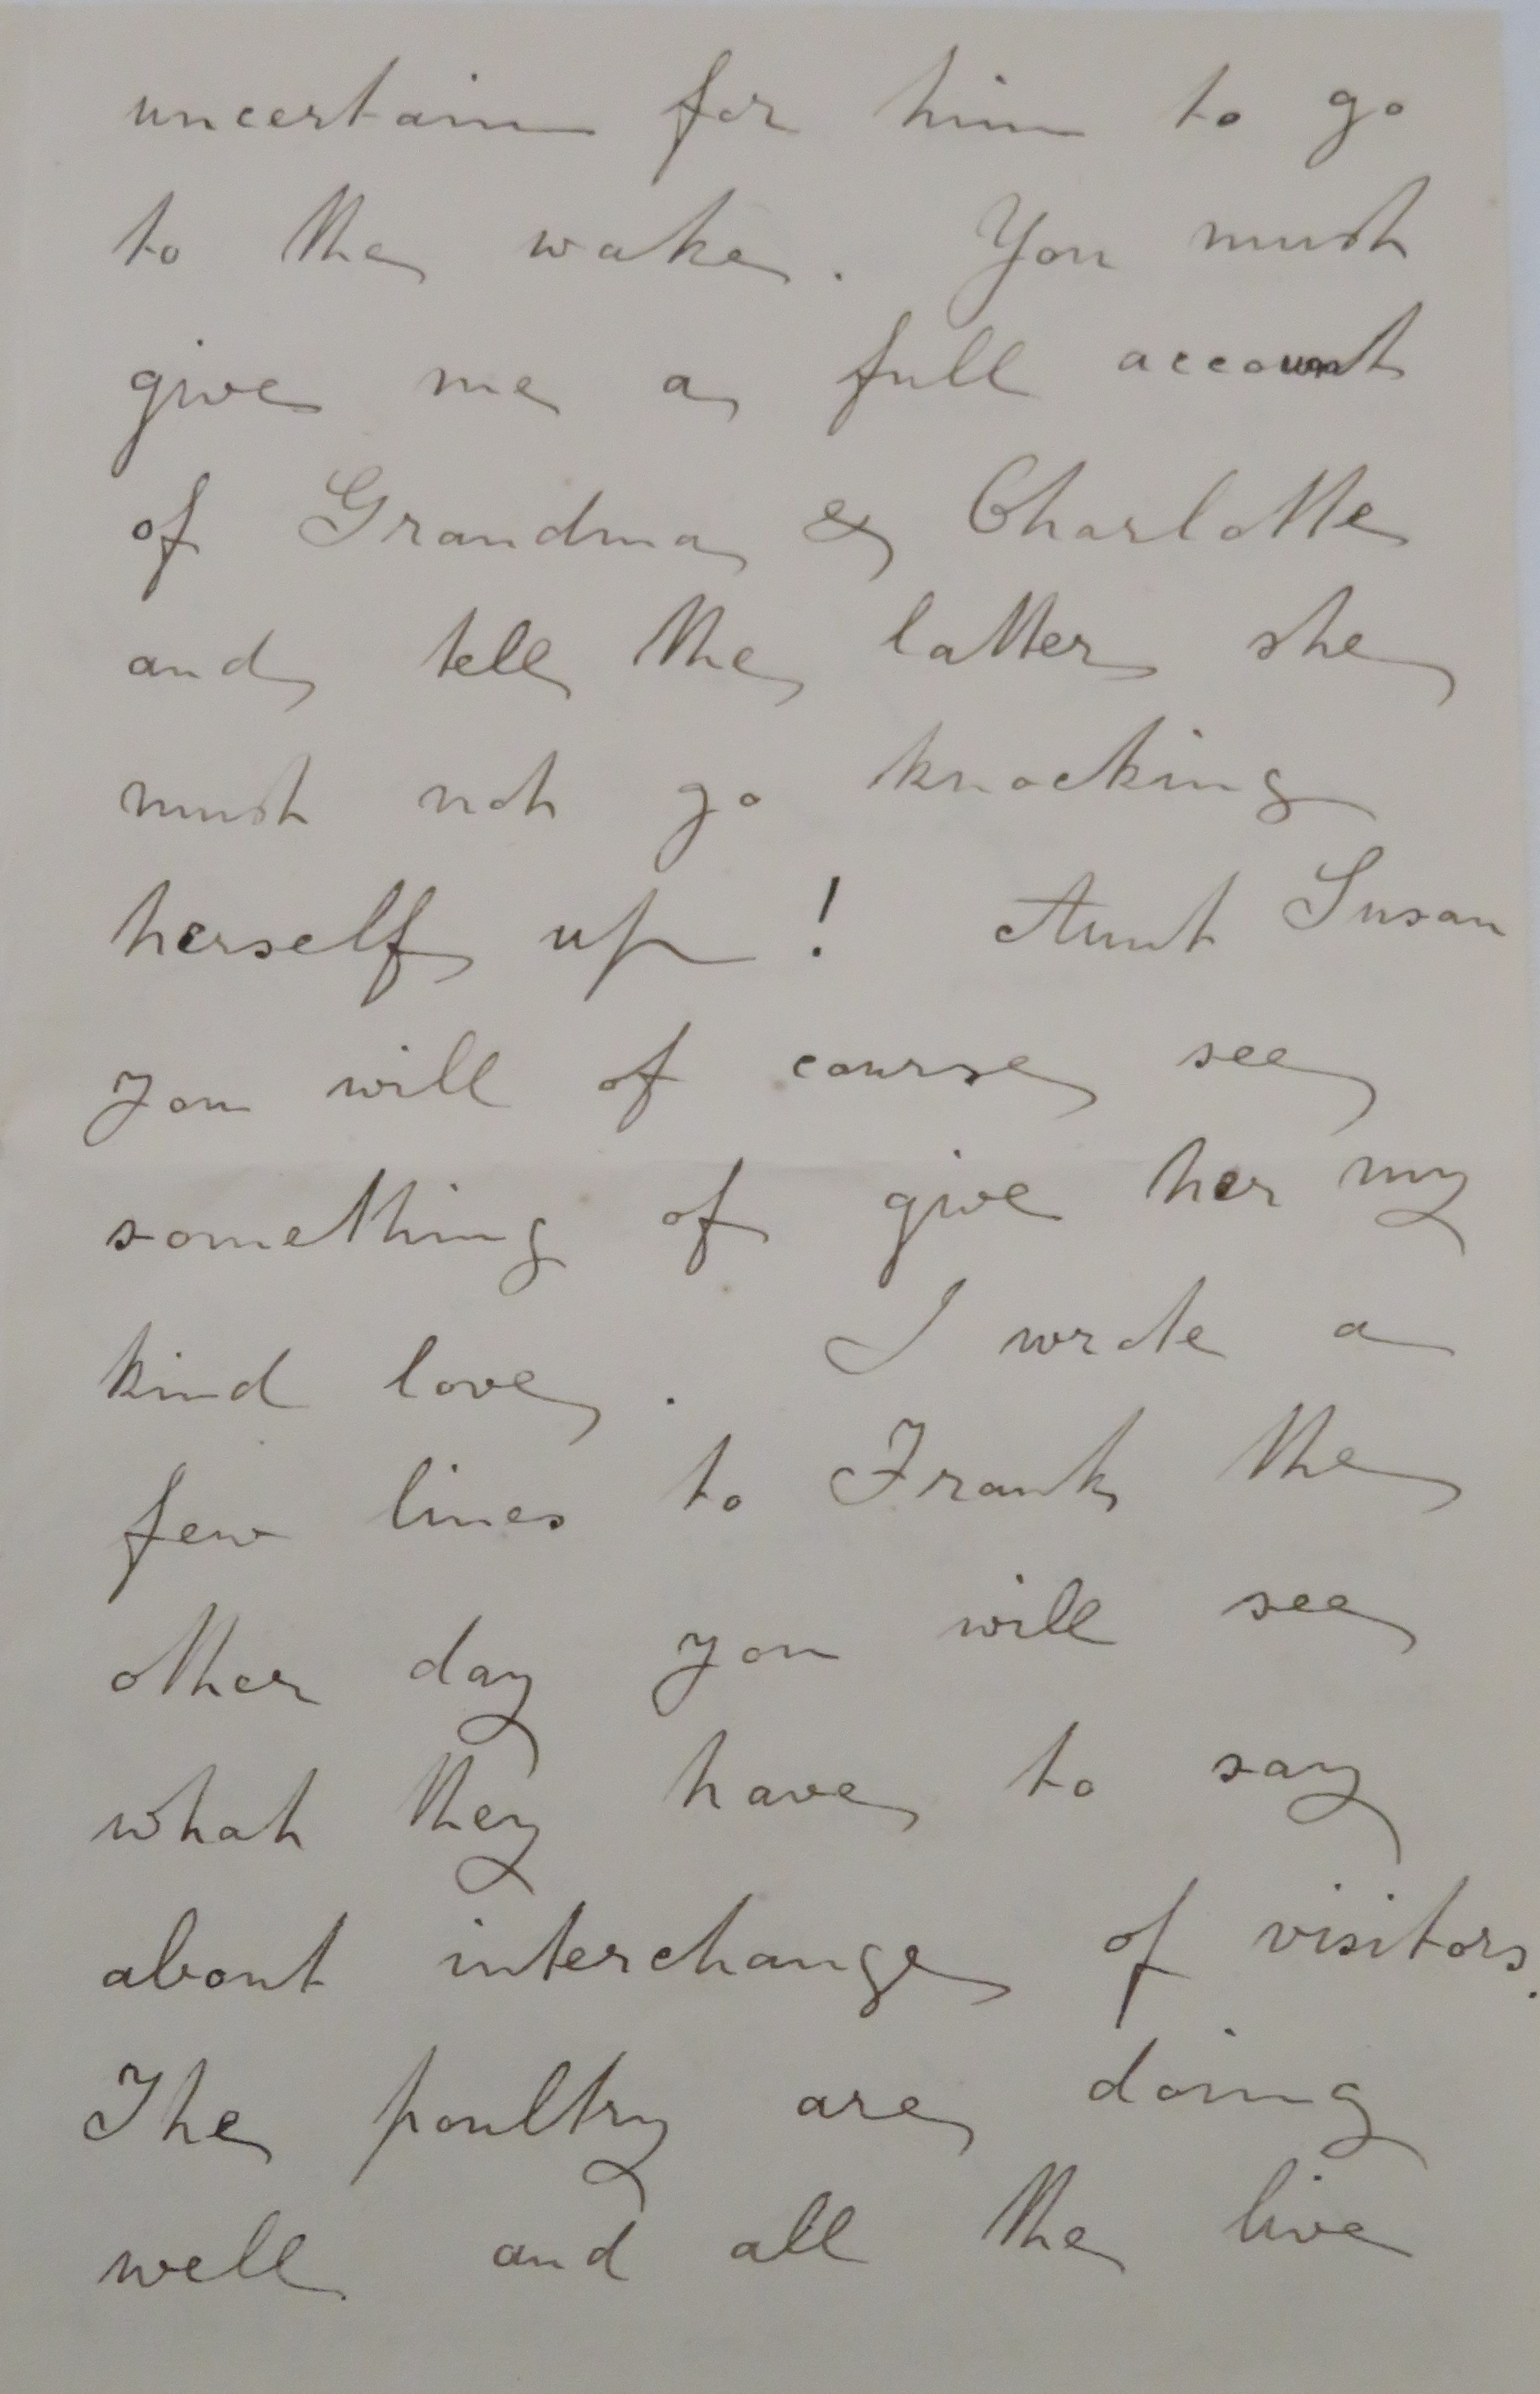 uncertain for him to go
to the wake. You must
give me a full account
of Grandma & Charlotte
and tell the latter she
must not go knocking
herself up! Aunt Susan
you will of course see
something of give her my
kind love. I wrote a
few lines to Frank the
other day you will see
what they have to say
about interchange of visitors.
The poultry are doing
well and all the live